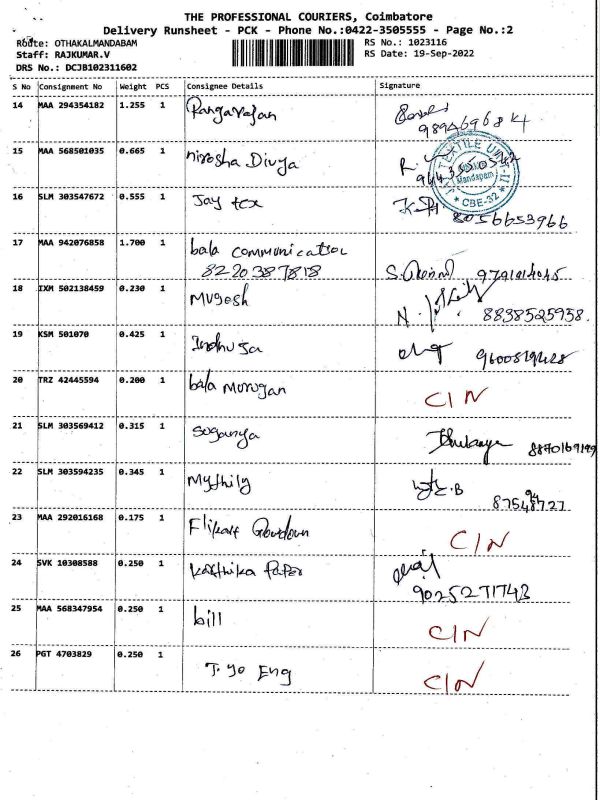 THE PROFESSIONAL COURIERS, Coimbatore
Delivery Runsheet - PCK - Phone No.:0422-3505555 - Page No.:2
Route: OTHAKALMANDABAM
RS No.: 1023116
Staff: RAJKUMAR.V
RS Date: 19-Sep-2022
DRS No.: DCJB102311602
S No Consignment No Weight PCS Consignee Details Signature
14 MAA 294354182 1.255 1 Rangarajan
989469684
15 MAA 568501035 0.665 1 nirosha Divya
TEXTILE UNIT-II
Mandapam
CBE-32
16 SLM 303547672 0.555 1 Jay tex
8056653966
17 MAA 942076858 1.700 1 bala communication
8220387818
18 IXM 502138459 0.230 1 Mugesh
8838525958.
19 KSM 501070 0.425 1 Indhuja
20 TRZ 42445594 0.200 1 bala Morugan CIN
21 SLM 303569412 0.315 1 Suganya
8870169199
22 SLM 303594235 0.345 1 Mythily
23 MAA 292016168 0.175 1 Flikart Gowdown CIN
24 SVK 10308588 0.250 1 Karthika Paper
9025271743
25 MAA 568347954 0.250 1 bill CIN
26 PGT 4703829 0.250 1 T. Yo Eng CIN